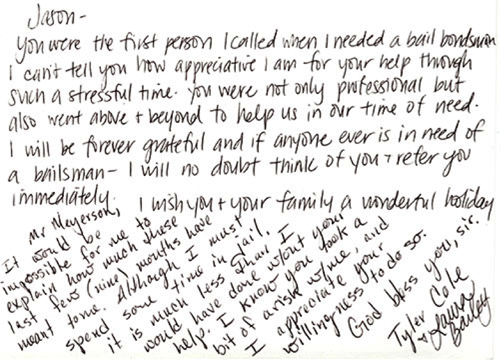 Jason-
You were the first person I called when I needed a bail bondsman
I can't tell you how appreciative I am for your help through
such a stressful time. You were not only professional but
also went above + beyond to help us in our time of need.
I will be forever grateful and if anyone ever is in need of
a bailsman- I will no doubt think of you + refer you
immediately. I wish you + your family a wonderful holiday
Mr Meyerson,
It would be
impossible for me to
explain how much these
last few (nine) months have
meant to me. Although I must
spend some time in jail,
it is much less than I
would have done w/out your
help. I know you took a
bit of a risk w/me, and
I appreciate your
willingness to do so.
God bless you, sir.
Tyler Cole
+ Bailey